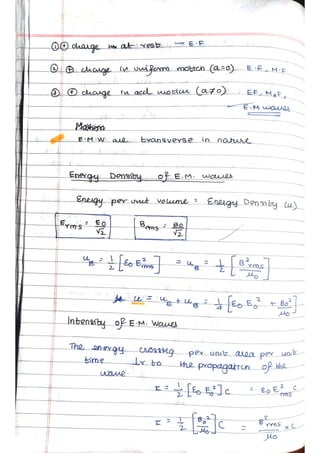 ① ⊕ charge at rest → E.F
② ⊕ charge in uniform motion (a=0) E.F, M.F
③ ⊕ charge in accl motion (a≠0) : EF, M.F,
E.M waves
E.M.W are transverse in nature
Energy Density of E.M. waves
Energy per unit volume = Energy Density (u)
Erms = E0/√2 Brms = B0/√2
uE = 1/2 [ε0 E²rms] = uB = 1/2 [B²rms/μ0]
u = uE + uB = 1/4 [ε0 E0² + B0²/μ0]
Intensity of E.M. Waves
The energy crossing per unit area per unit
time ⊥r to the propagation of the
wave
I = 1/2 [ε0 E0²] C = ε0 E²rms C
I = 1/2 [B0²/μ0] C = B²rms/μ0 × C